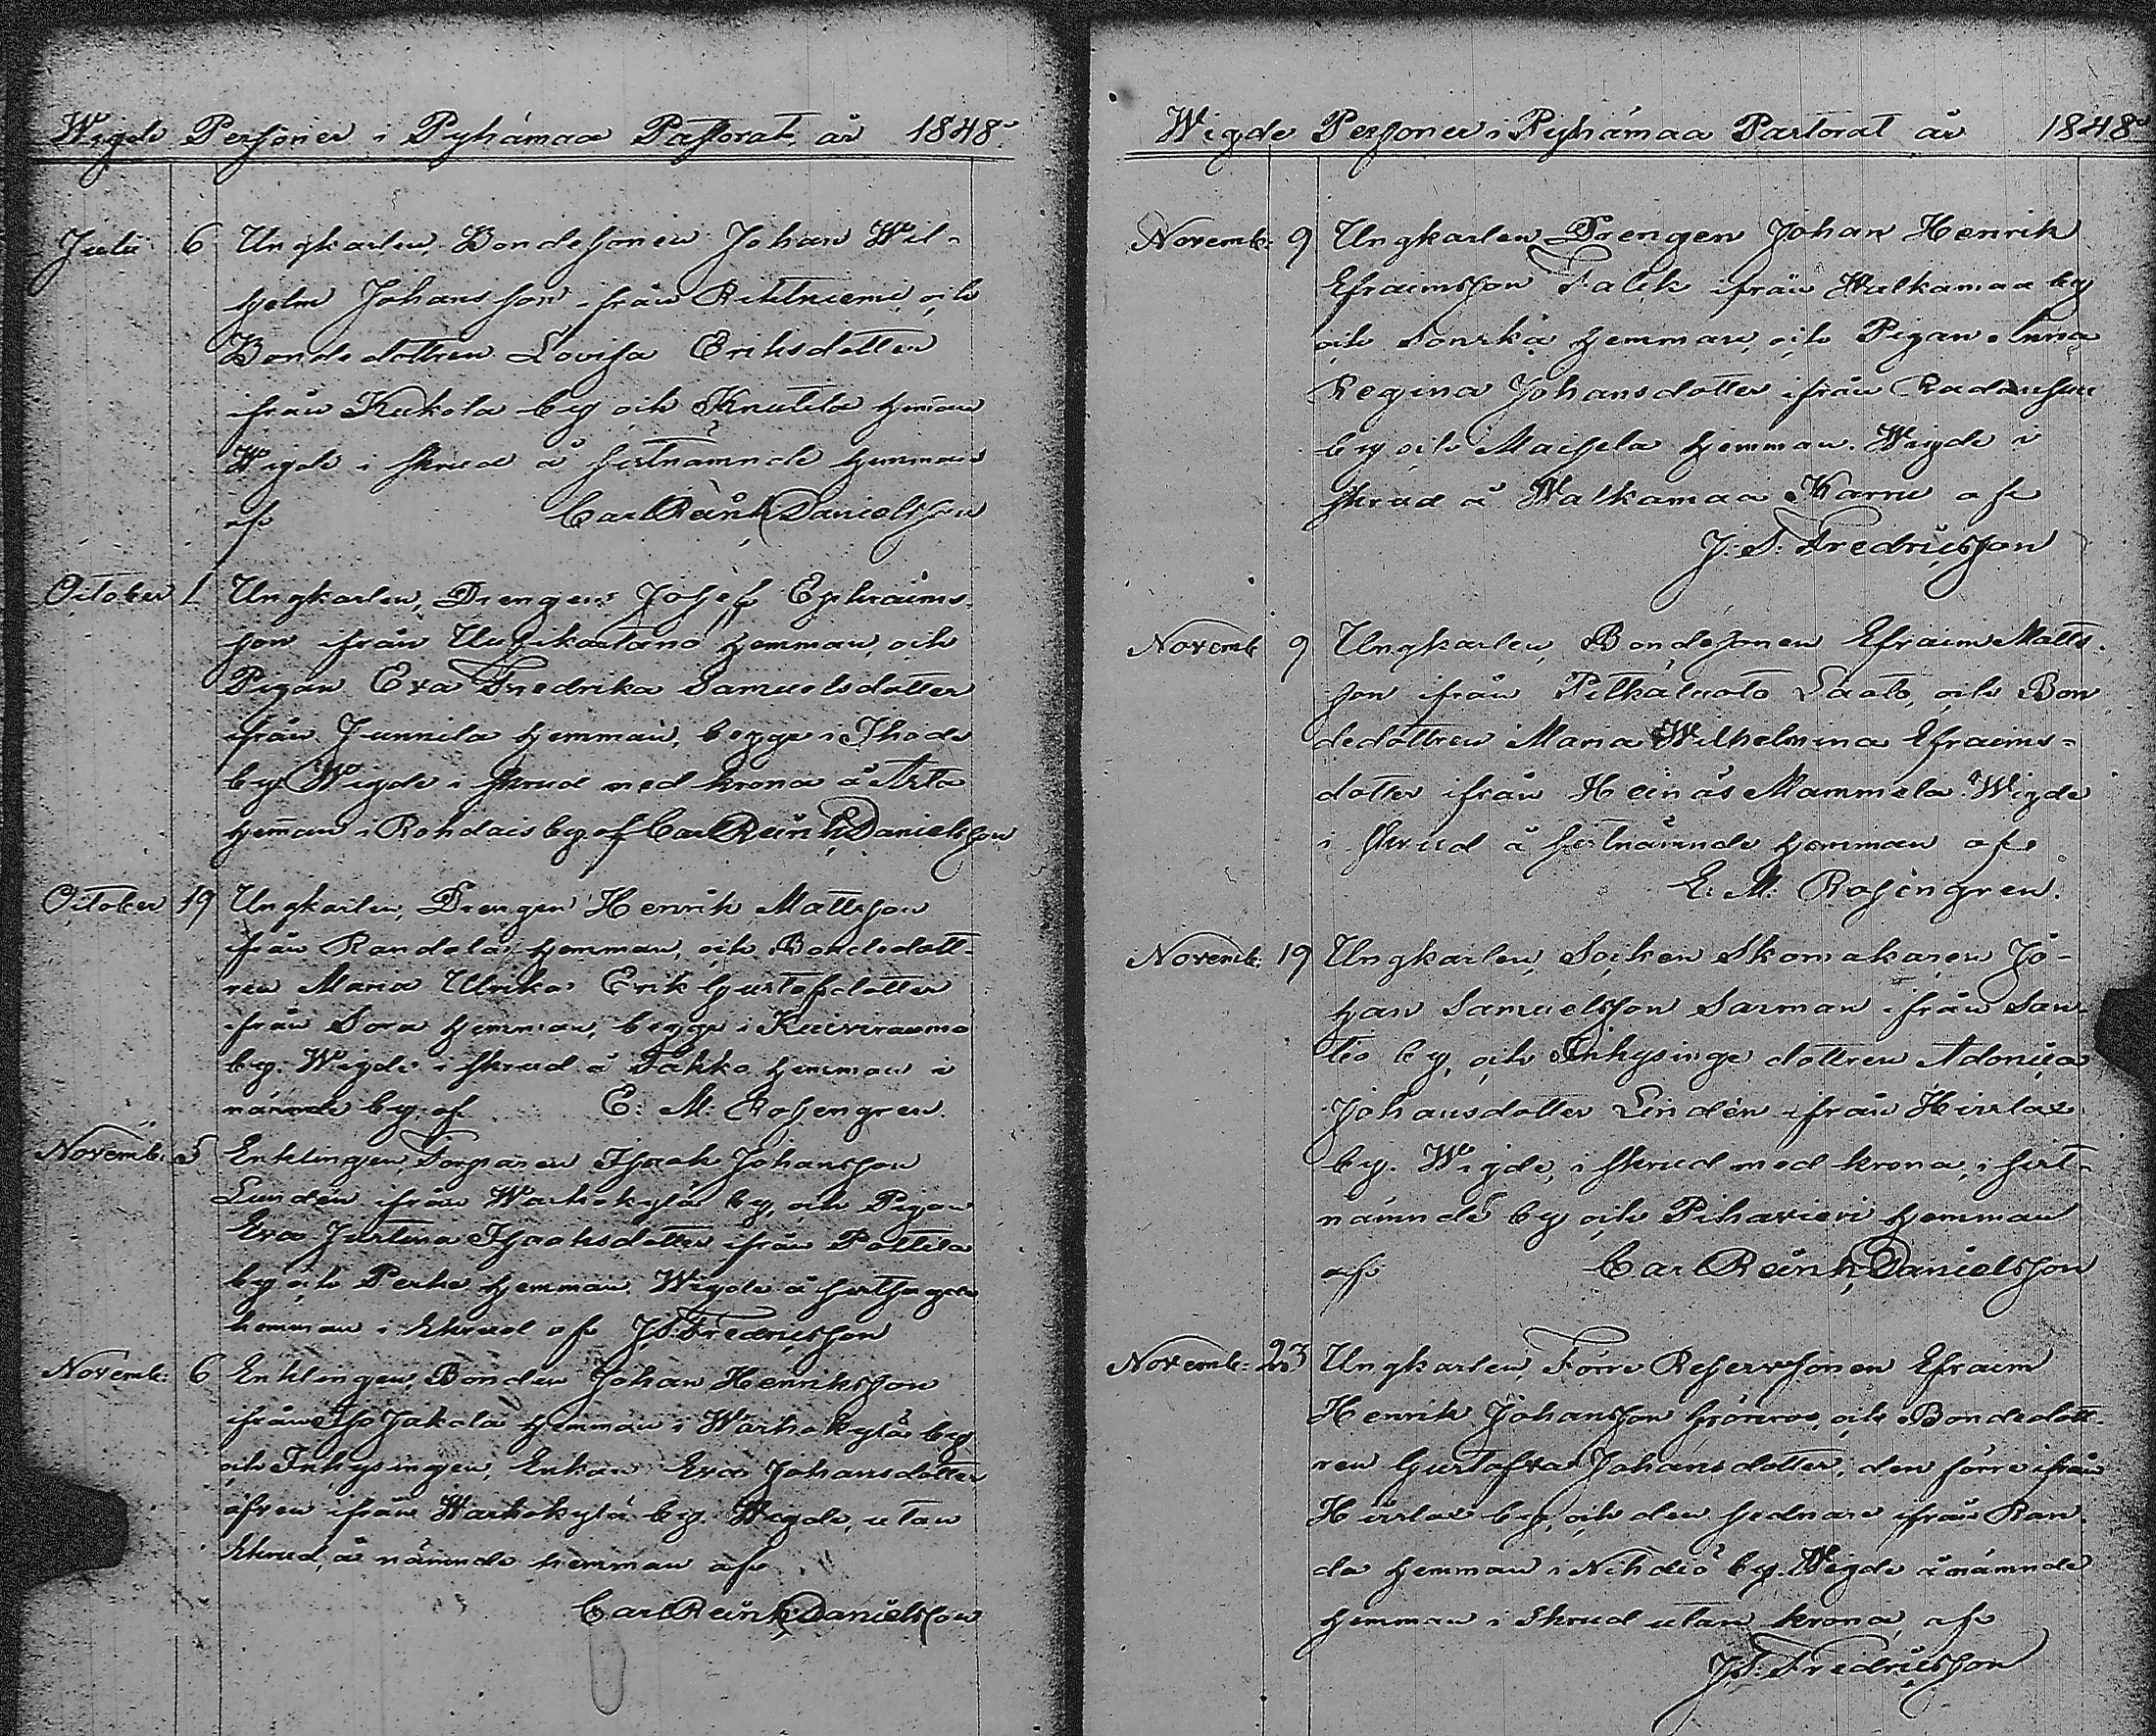 Wigde Personer i Pyhämaa Pastorat, år 1848.
Julii 6 Ungkarlen, Bondesonen Johan Wil-
helm Johansson ifrån Rihtniemi, och
Bondedottren Lovisa Eriksdotter
ifrån Kukola by och Knutila hemman
Wigde i skrud å sistnämnde hemman
af Carl Reinh. Danielsson
October 1 Ungkarlen, Drengen Josef Ephraims-
son ifrån Uusikartano hemman, och
Pigan Eva Fredrika Samuelsdotter
ifrån Junnila hemman, begge i Ihode
by. Wigde i skrud med krona å Arta
hemman i Rohdais by af Carl Reinh. Danielsson
October 19 Ungkarlen, Drengen Henrik Mattsson
ifrån Randala hemman, och Bondedott-
ren Maria Ulrika Erik Gustafsdotter
ifrån Sora hemman, begge i Kuivirauma
by. Wigde i skrud å Takko hemman i
nämnde by af E. M. Rosengren.
Novemb. 5 Enklingen, Torparen Isaak Johansson
Lundén ifrån Warhokylä by, och Pigan
Eva Justina Isaaksdotter ifrån Pottila
by och Perhe hemman. Wigde å sistsagde
hemman i skrud af J. T. Fredricsson
Novemb. 6 Enklingen, Bonden Johan Henriksson
ifrån Jakola hemman i Warhokylä by
och Inhysingen, Enkan Eva Johansdotter
äfven ifrån Warhokylä by. Wigde, utan
skrud, å nämnde hemman af
Carl Reinh. Danielsson
Wigde Personer i Pyhämaa Pastorat år 1848
Novemb. 9 Ungkarlen, Drengen Johan Henrik
Efraimsson Falck ifrån Walkamaa by
och Sonska hemman, och Pigan Anna
Regina Johansdotter ifrån
by och Maisela hemman. Wigde i
skrud å Walkamaa Karru af
J. T. Fredricsson
Novemb. 9 Ungkarlen, Bondesonen Efraim Matts-
son ifrån Pitkäluoto Saato, och Bon
dedottren Maria Wilhelmina Efraims-
dotter ifrån Heinäs Mammela. Wigde
i skrud å sistnämnde hemman af
E. M. Rosengren.
Novemb. 19 Ungkarlen, Socken Skomakaren Jo-
han Samuelsson Sarman ifrån San-
tio by, och Inhysinge dottren Adonica
Johansdotter Lindén ifrån Hirslax
by. Wigde, i skrud med krona, i sist-
nämnde by och Pihavieri hemman
af Carl Reinh. Danielsson
Novemb. 23 Ungkarlen, Förre Reservsonen Efraim
Henrik Johansson Hjörrov, och Bondedott-
ren Gustafva Johansdotter; den förre ifrån
Hirslax by, och den sednare ifrån Ran-
da hemman i Nihdiö by. Wigde å nämnde
hemman i skrud utan krona, af
J. T. Fredricsson